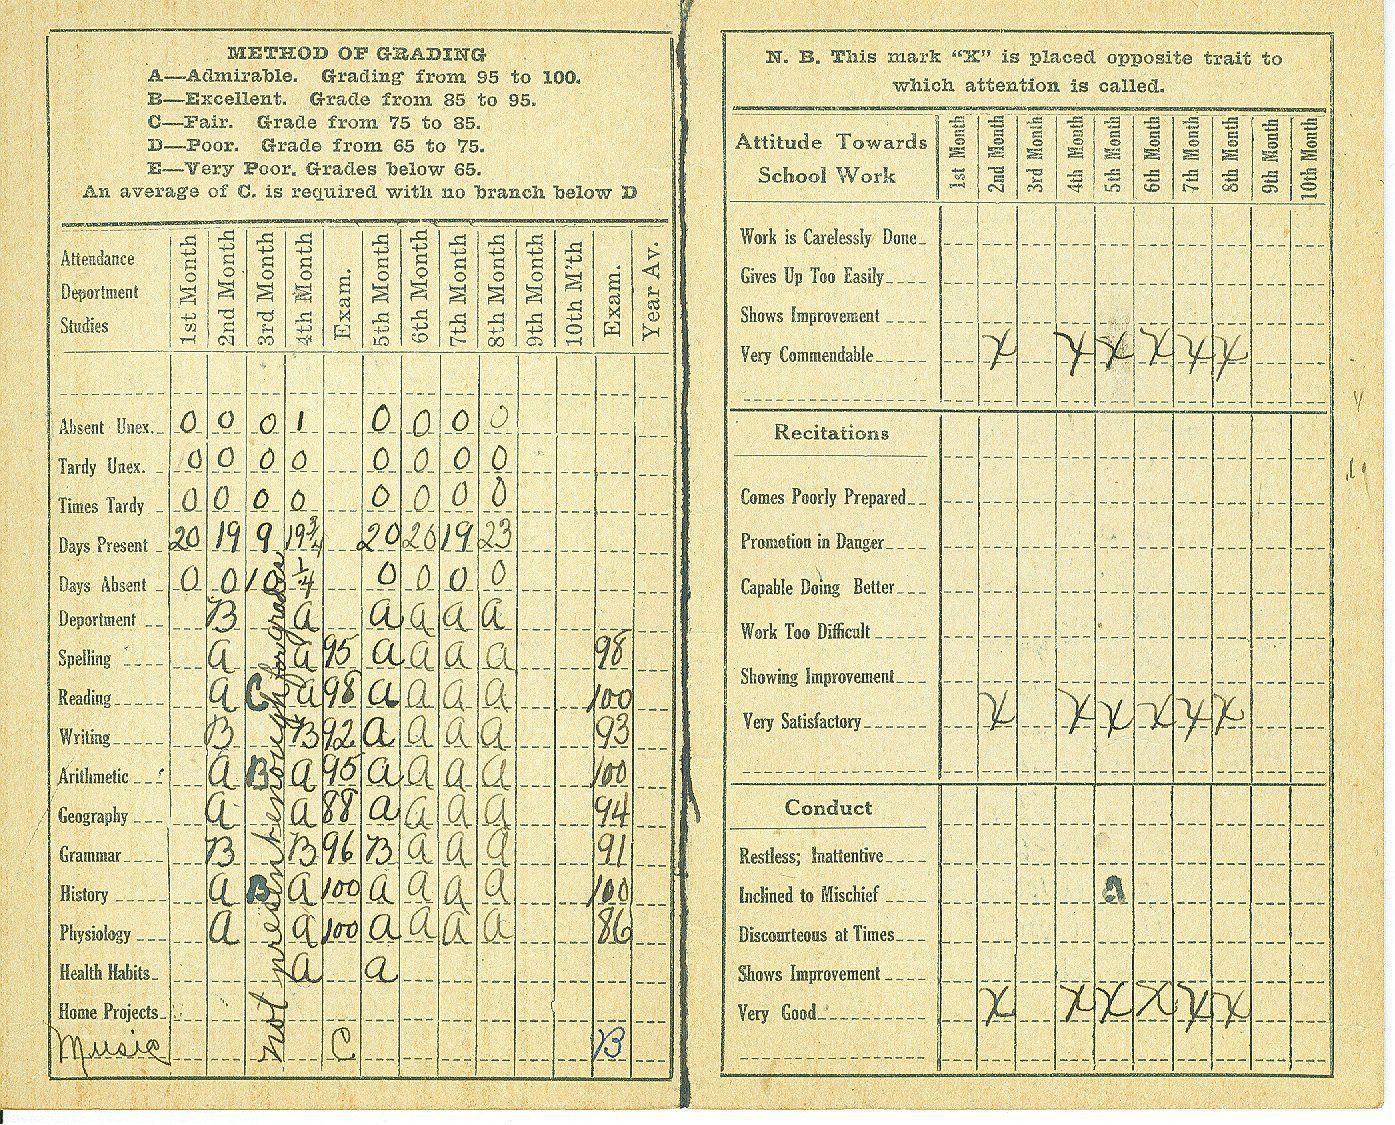 METHOD OF GRADING
A—Admirable. Grading from 95 to 100.
B—Excellent. Grade from 85 to 95.
C—Fair. Grade from 75 to 85.
D—Poor. Grade from 65 to 75.
E—Very Poor. Grades below 65.
An average of C. is required with no branch below D
Attendance
Deportment
Studies
1st Month 2nd Month 3rd Month 4th Month Exam. 5th Month 6th Month 7th Month 8th Month 9th Month 10th M'th Exam. Year Av.
Absent Unex. 0 0 0 1 0 0 0 0
Tardy Unex. 0 0 0 0 0 0 0 0
Times Tardy 0 0 0 0 0 0 0 0
Days Present 20 19 9 19 3/4 20 20 19 23
Days Absent 0 0 10 1/4 0 0 0 0
Deportment B a a a a a
Spelling a a 95 a a a a 98
Reading a C a 98 a a a a 100
Writing B B 92 a a a a 93
Arithmetic a B a 95 a a a a 100
Geography a a 88 a a a a 94
Grammar B B 96 B a a a 91
History a B a 100 a a a a 100
Physiology a a 100 a a a a 86
Health Habits a a
Home Projects
Music C B
not present enough for grades
N. B. This mark “X” is placed opposite trait to
which attention is called.
Attitude Towards
School Work
1st Month 2nd Month 3rd Month 4th Month 5th Month 6th Month 7th Month 8th Month 9th Month 10th Month
Work is Carelessly Done
Gives Up Too Easily
Shows Improvement
Very Commendable X X X X X X
Recitations
Comes Poorly Prepared
Promotion in Danger
Capable Doing Better
Work Too Difficult
Showing Improvement
Very Satisfactory X X X X X X
Conduct
Restless; Inattentive
Inclined to Mischief
Discourteous at Times
Shows Improvement
Very Good X X X X X X